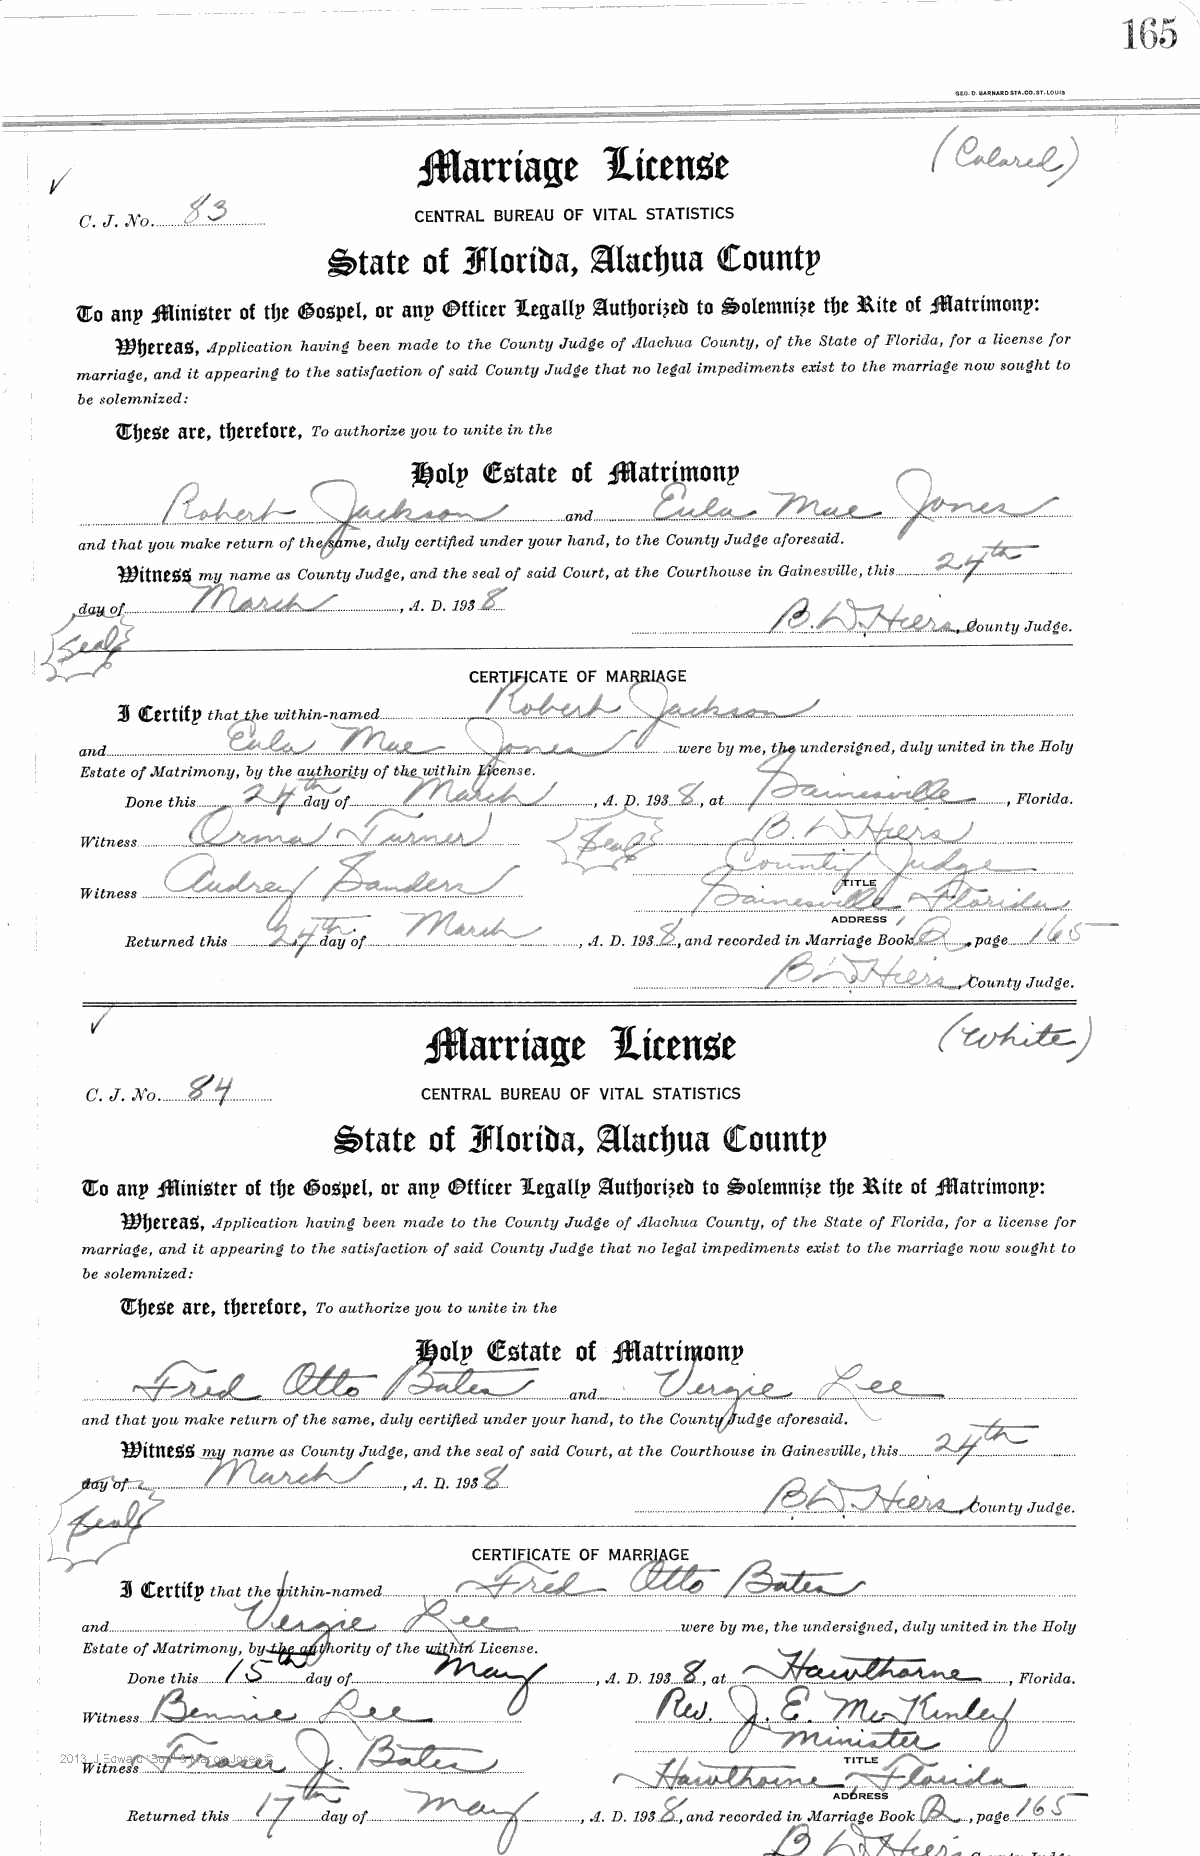 165
GEO. D. BARNARD STA. CO. ST. LOUIS
(Colored)
Marriage License
C. J. No. 83
CENTRAL BUREAU OF VITAL STATISTICS
State of Florida, Alachua County
To any Minister of the Gospel, or any Officer Legally Authorized to Solemnize the Rite of Matrimony:
Whereas, Application having been made to the County Judge of Alachua County, of the State of Florida, for a license for
marriage, and it appearing to the satisfaction of said County Judge that no legal impediments exist to the marriage now sought to
be solemnized:
These are, therefore, To authorize you to unite in the
Holy Estate of Matrimony
Robert Jackson and Eula Mae Jones
and that you make return of the same, duly certified under your hand, to the County Judge aforesaid.
Witness my name as County Judge, and the seal of said Court, at the Courthouse in Gainesville, this 24th
day of March, A. D. 1938
B. D. Hiers, County Judge.
Seal
CERTIFICATE OF MARRIAGE
I Certify that the within-named Robert Jackson
and Eula Mae Jones were by me, the undersigned, duly united in the Holy
Estate of Matrimony, by the authority of the within License.
Done this 24th day of March, A. D. 1938, at Gainesville, Florida.
Witness Orma Turner Seal B. D. Hiers
County Judge
Witness Audrey Sanders TITLE
Gainesville, Florida
ADDRESS
Returned this 24th day of March, A. D. 1938, and recorded in Marriage Book, page 165
B D Hiers, County Judge.
(White)
Marriage License
C. J. No. 84
CENTRAL BUREAU OF VITAL STATISTICS
State of Florida, Alachua County
To any Minister of the Gospel, or any Officer Legally Authorized to Solemnize the Rite of Matrimony:
Whereas, Application having been made to the County Judge of Alachua County, of the State of Florida, for a license for
marriage, and it appearing to the satisfaction of said County Judge that no legal impediments exist to the marriage now sought to
be solemnized:
These are, therefore, To authorize you to unite in the
Holy Estate of Matrimony
Fred Otto Bates and Vergie Lee
and that you make return of the same, duly certified under your hand, to the County Judge aforesaid.
Witness my name as County Judge, and the seal of said Court, at the Courthouse in Gainesville, this 24th
day of March, A. D. 1938
B D Hiers, County Judge.
Seal
CERTIFICATE OF MARRIAGE
I Certify that the within-named Fred Otto Bates
and Vergie Lee were by me, the undersigned, duly united in the Holy
Estate of Matrimony, by the authority of the within License.
Done this 15th day of May, A. D. 1938, at Hawthorne, Florida.
Witness Bennie Lee Rev. J. E. McKinley
Minister
2013 J Edward
Witness Fraser J. Bates TITLE
Hawthorne, Florida
ADDRESS
Returned this 17th day of May, A. D. 1938, and recorded in Marriage Book, page 165
B D Hiers